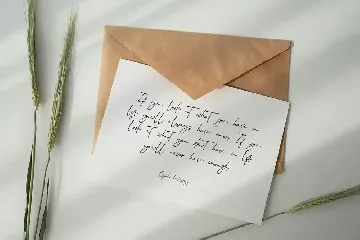 If you look at what you have in
life, you'll always have more. If you
look at what you don't have in life,
you'll never have enough.